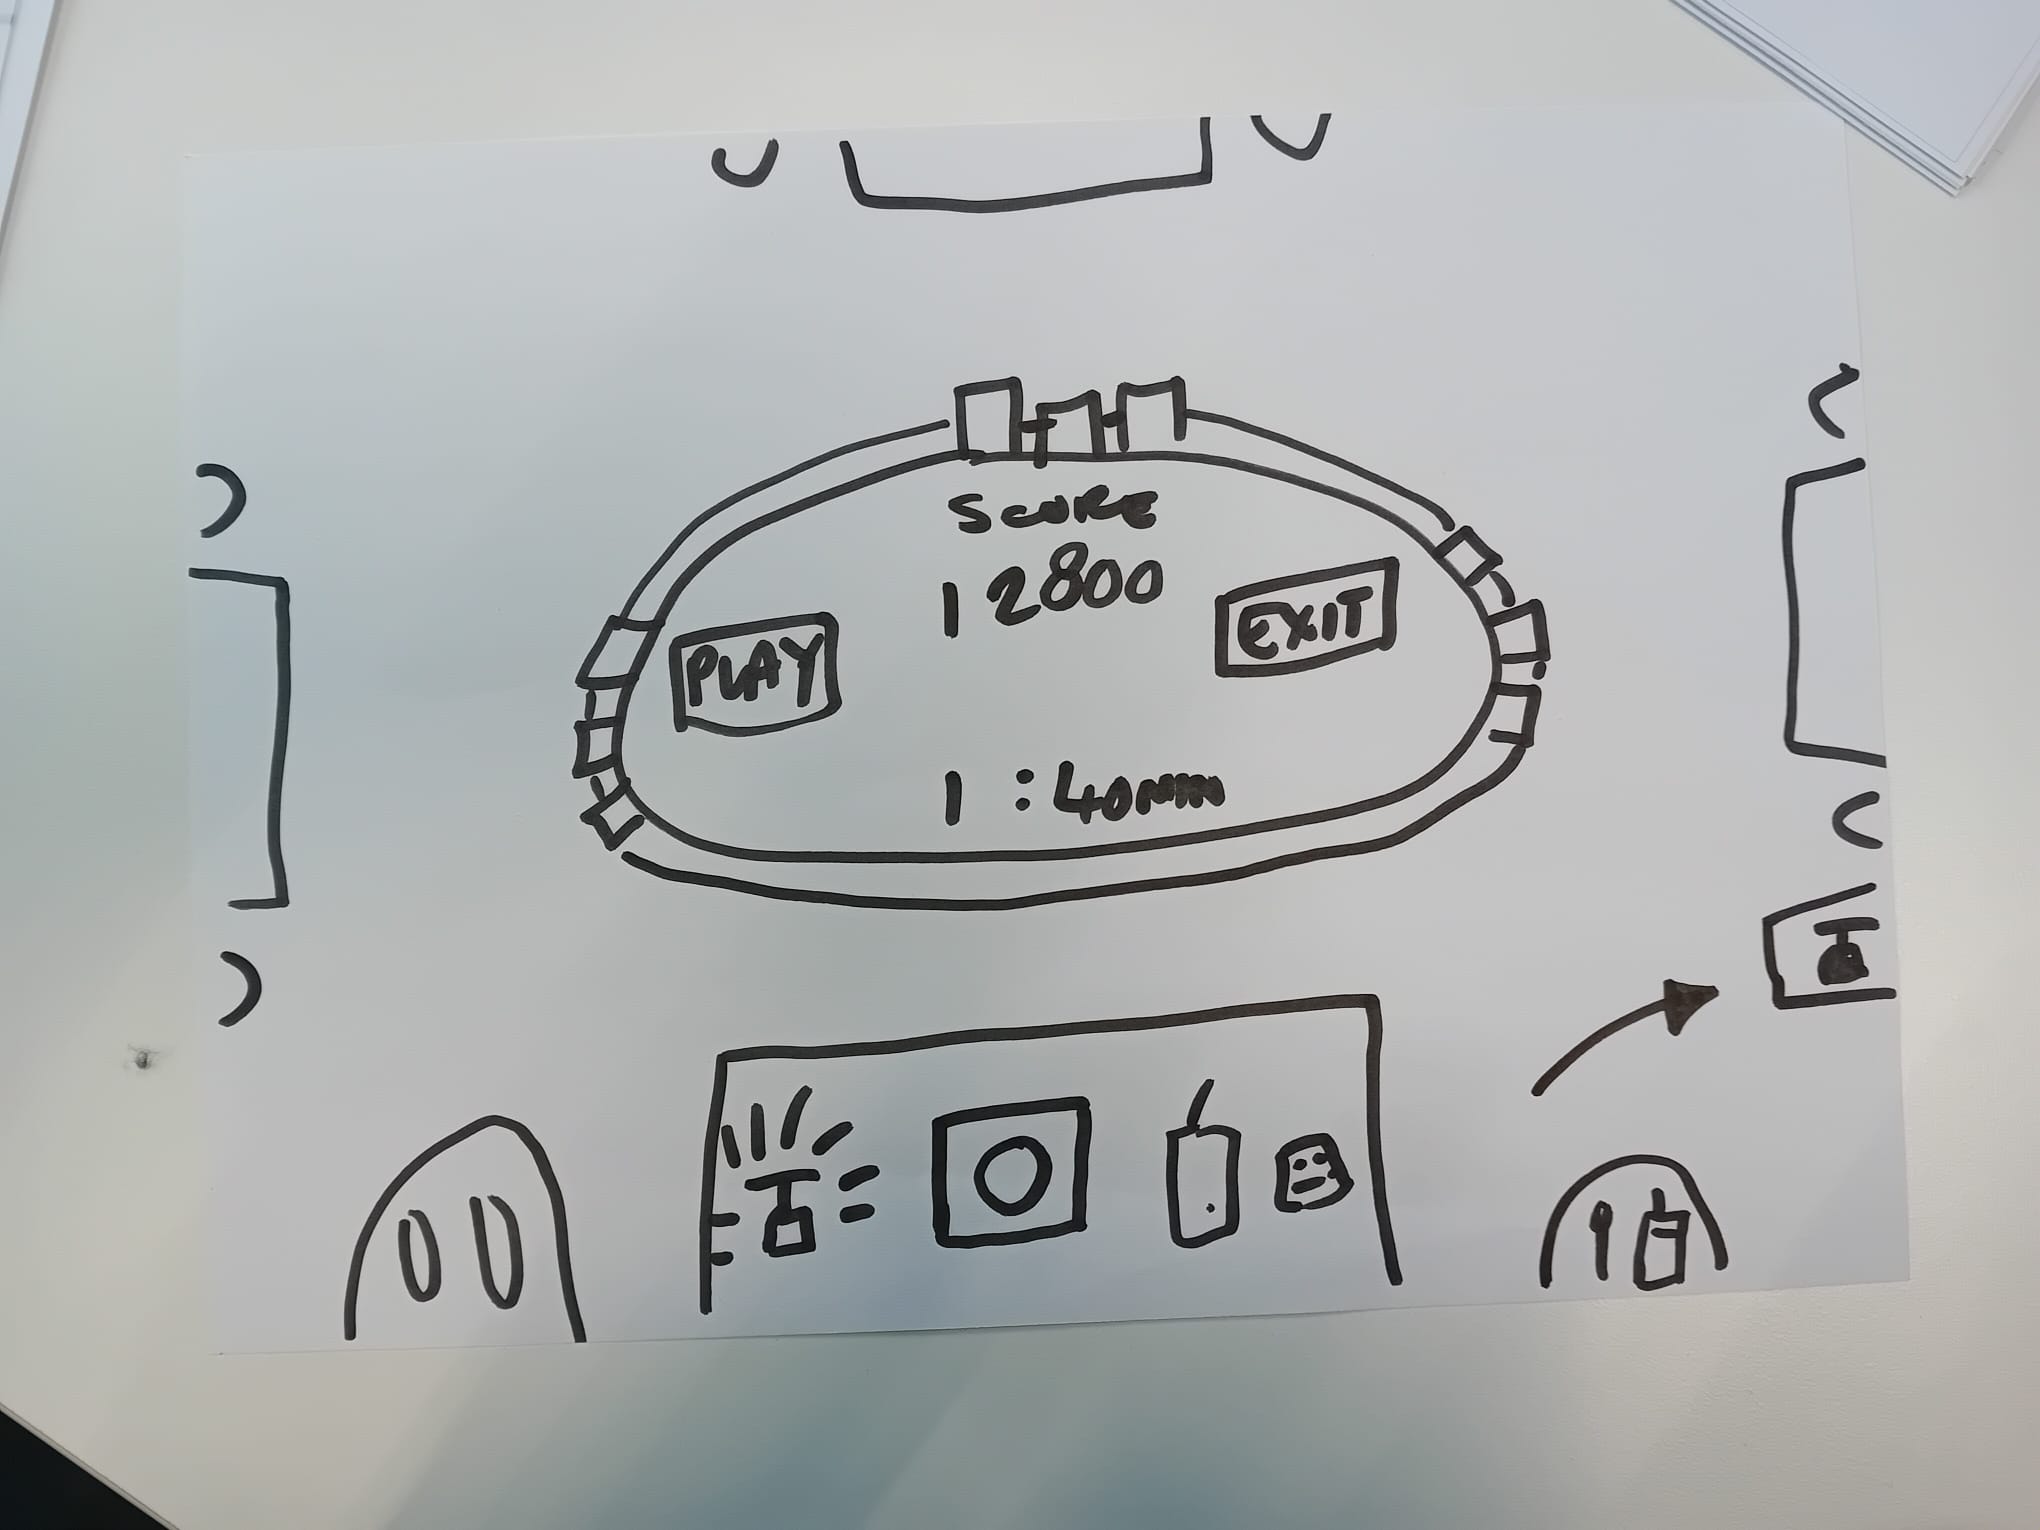 SCORE
12800
PLAY
EXIT
1:40min